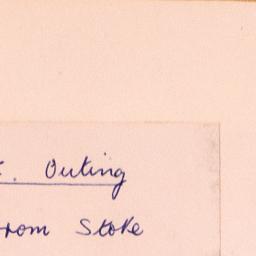 . Outing
from Stoke